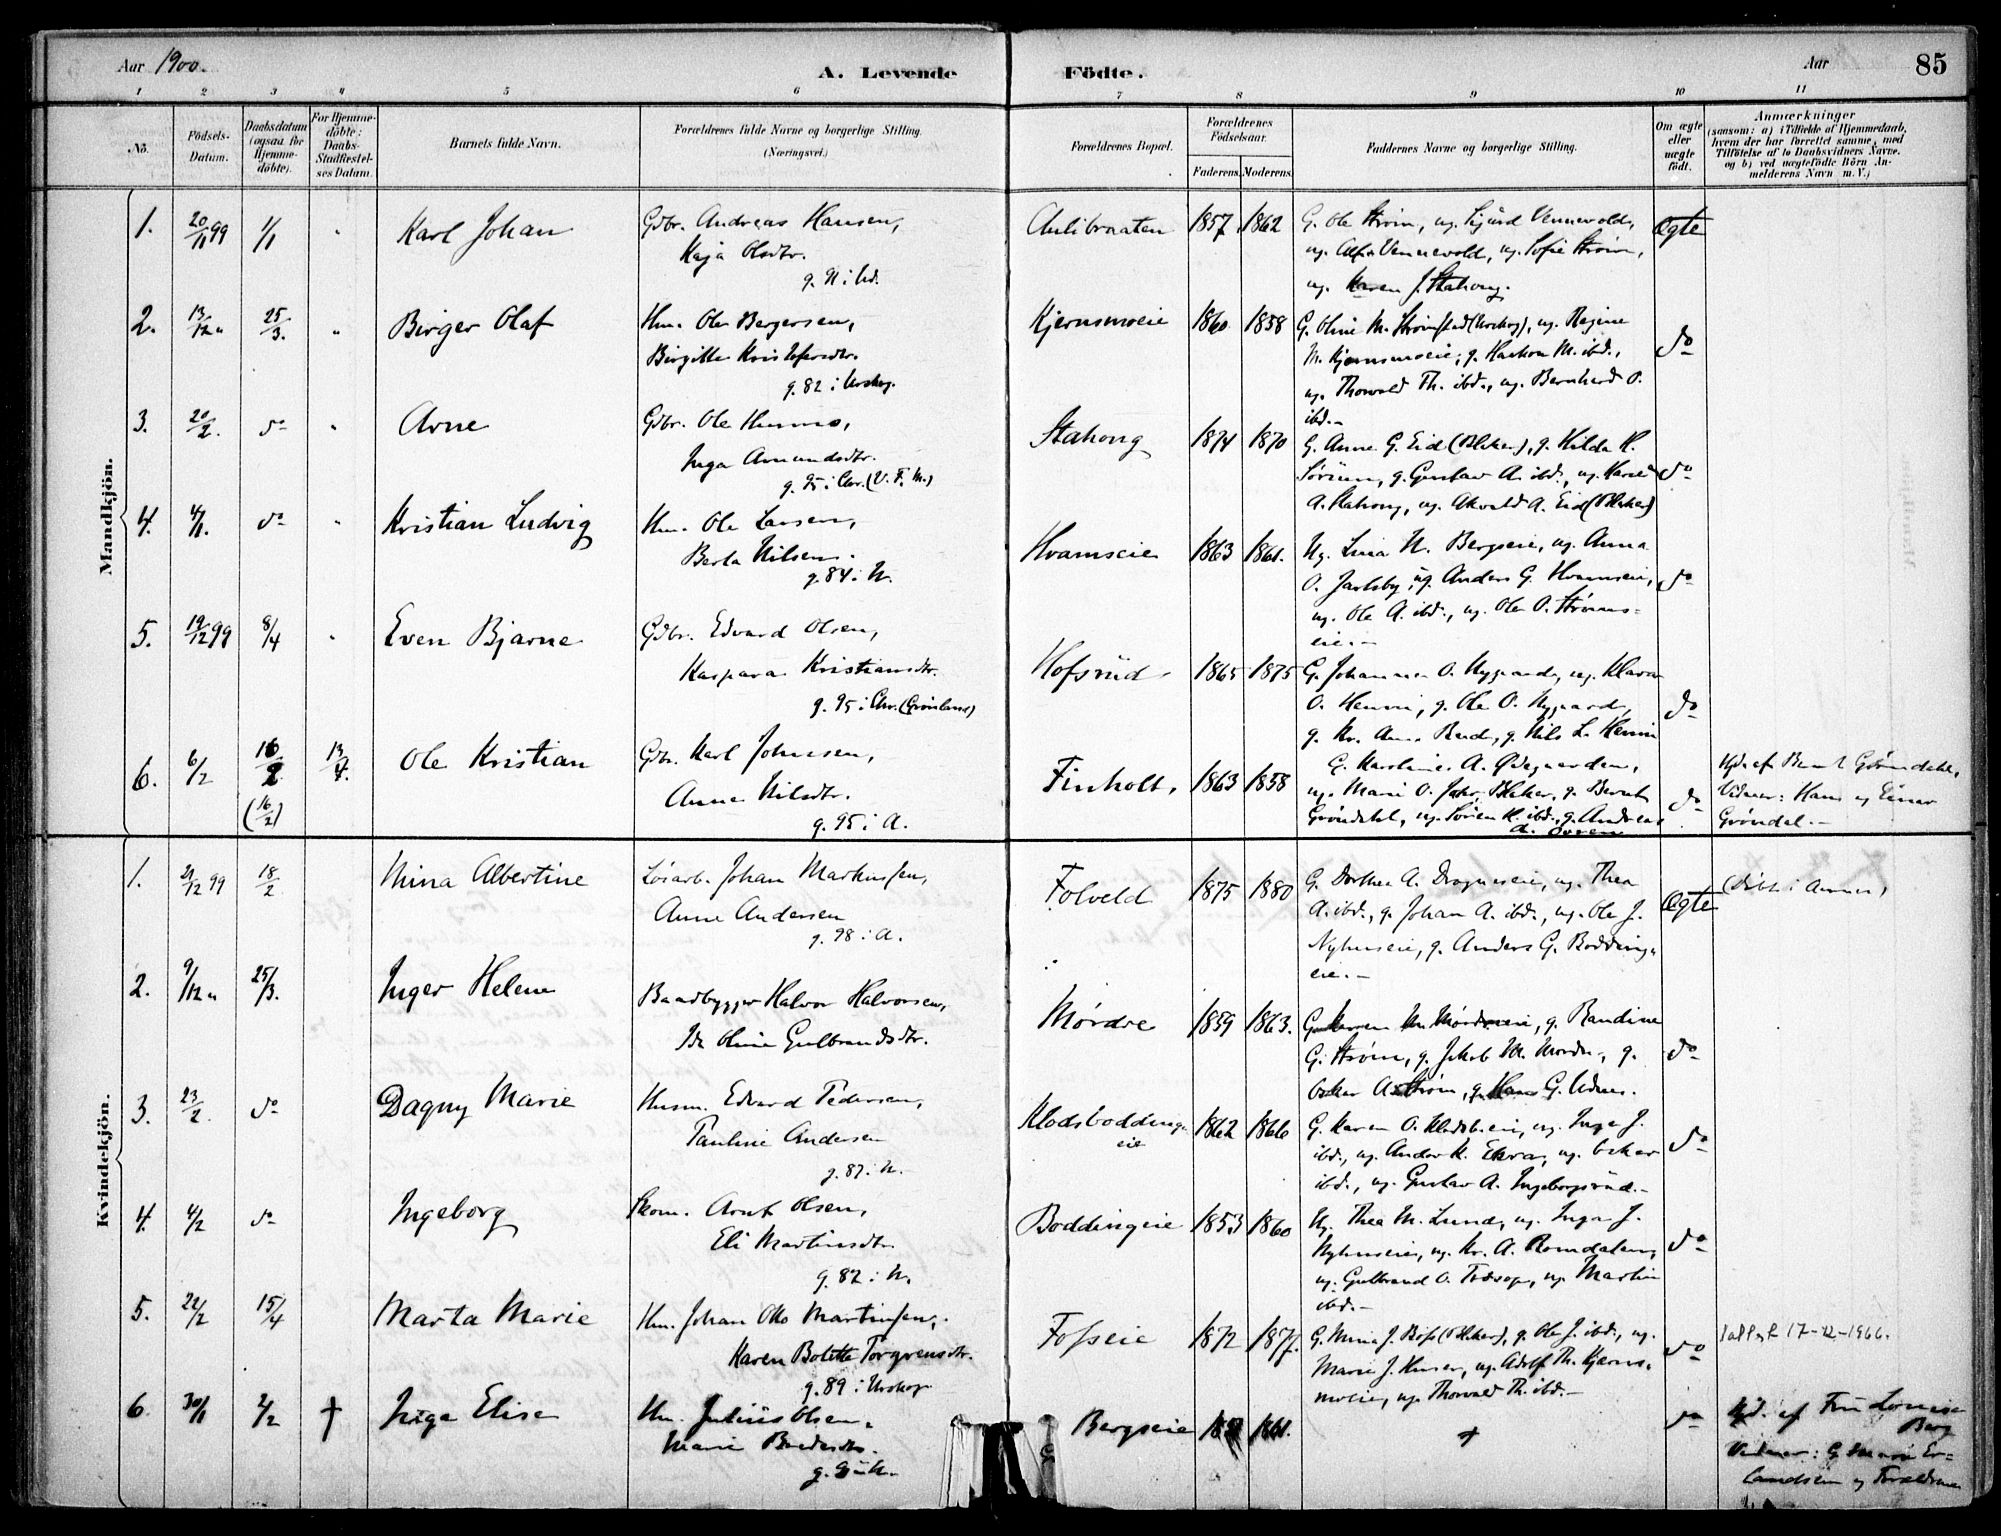 Aar 1900.
A. Levende Födte.
Aar
85
1 2 3 4 5 6 7 8 9 10 11
No.
Födsels-Datum.
Daabsdatum (ogsaa för Hjemmedöbte).
For Hjemmedöbte: Daabs-Stadfæstelses Datum.
Barnets fulde Navn.
Forældrenes fulde Navne og borgerlige Stilling.
(Næringsvei.)
Forældrenes Bopæl.
Forældrenes Födselsaar.
Faderens. Moderens.
Faddernes Navne og borgerlige Stilling.
Om ægte eller uægte födt.
Anmærkninger
(saasom: a) i Tilfælde af Hjemmedaab, hvem der har forrettet samme, med Tilföielse af to Daabsvidners Navne, og b) ved uægtefödte Börn Anmelderens Navn m. V.)
Mandkjön.
1. 20/11 99 1/1 " Karl Johan Gdbr. Andreas Hansen, Aulibraaten 1857. 1862 G. Ole Strøm, ug. Sigurd Vennevold, Ægte
Kaja Olsdtr. ug. Vennevold, ug. Sofie Strøm,
ug. Karen J. Stahong.
2. 13/12 " 25/3. " Birger Olaf Hm. Ole Bergersen, Kjernsmoeie 1860 1858 G. Oline M. (Urskog), ug. Regine do
Birgitte Kristofersdtr. M. Kjernsmoeie, g. M. ibd.,
g. 82 i Urskog. ug. Thorvald Th. ibd., ug. Bernhard O.
ibd.
3. 20/2. do " Arne Gdbr. Ole Stahong 1874 1870 G. Anne G. Eid (Blaker), g. Hilda K. do
Inga Amundsdtr. Sörum, g. Gustav A. ibd., ug.
g. 95 i Chr. (V. F. M.) A. Stahong, ug. A. Eid (Blaker)
4. 4/1. do " Kristian Ludvig Hm. Ole Larsen, Hvamseie 1863 1861. Ug. Lina N. Bergseie, ug. Anna do
Berta Nilsen. O. Jarlsby, ug. Anders G. Hvamseie,
g. 84 i N. ug. Ole A. ibd., ug. Ole O. Strøms=
eie.
5. 19/12 99 8/4 " Even Bjarne Gdbr. Edvard Olsen, Hofsrud 1865 1875 G. Johannes O. Nygaard, ug. Klara do
Kaspara Kristiansdtr. O. Hennie, g. Ole O. Nygaard,
g. 95 i Chr. (Grönland) g. Kr. Rud, g. Nils L. Hennie
6. 6/2 16/2 (16/2) 13/4. Ole Kristian Gdbr. Karl Johnsen, Finholt, 1863 1858 G. Karoline A. Ødegaarden, do Hjd. af Gröndahl,
Anne Nilsdtr. ug. Marie O. Blaker, g. Bernt Vidner: Hans og Einar
g. 95 i A. Gröndahl, ug. Søren K. ibd., g. Andreas Gröndal.
Kvindekjön.
1. 21/12 99 18/2 Mina Albertine Løsarb. Johan Markussen, Folveld 1875 1880 G. Dorthea A. Dragnæseie, ug. Thea Ægte
Anne Andersen A. ibd., g. Johan A. ibd., ug. Ole J.
g. 98 i A. Nyhuseie, g. Anders G. Bodding=
eie.
2. 9/12 " 25/3. Inger Helene Baadbygger Halvor Halvorsen, Mørdre 1859 1863. G. Karen M. Mørdreeie, g. Randine do
Ida Oline Gulbrandsdtr. G. Strøm, g. Jakob M. Mordre, g.
Oskar A. Strøm, g. Hans G. Udnes.
3. 23/2. do Dagny Marie Husm. Edvard Pedersen, Klodsboddingeie 1862 1866 G. Karen O. Klodsb.eie, ug. Inga J. do
Pauline Andersen ibd., ug. Andor K. Ekra, ug. Oskar
g. 87 i N. ibd., ug. Gustav A. Ingeborgsrud.
4. 4/2 do Ingeborg Skom. Arnt Olsen, Boddingeie 1853 1860 Ug. Thea M. Lund, ug. Inga J. do
Eli Martinsdtr. Nyhuseie, ug. Kr. A. Romdalen,
g. 82 i N. ug. Gulbrand O. ug. Martin
ibd.
5. 22/2 15/4 Marta Marie Hm. Johan Otto Martinsen, Fosseie 1872 1877. G. Mina J. (Blaker), g. Ole J. ibd., ug. do 17-12-1966.
Karen Bolette Torgersdtr. Marie J. Huser, ug. Adolf Th. Kjerns=
g. 89 i Urskog moeie, ug. Thorvald Th. ibd.
6. 30/1 2/2 † Inga Elise Hm. Julius Olsen, Bergseie 1861. † do Hjd. af Fru Lovise
Marie Berg
Vidner: G. Marie Er=
landsen og Forældrene